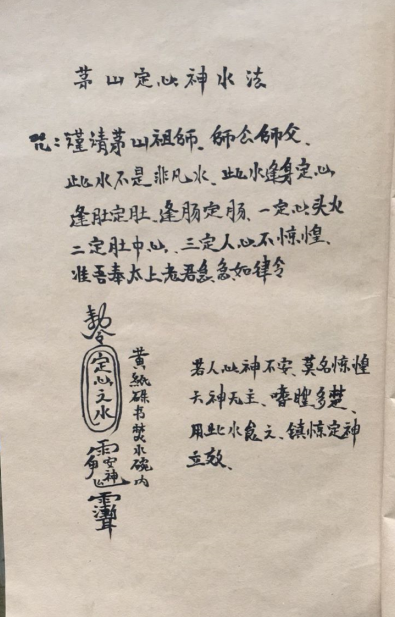 茅山定心神水法
咒：瑾请茅山祖師、師公師父、
此水不是非凡水、此水逢身定心
逢肚定肚、逢肠定肠、一定心头火
二定肚中心、三定人心不惊惶、
准吾奉太上老君急急如律令
敕令
定心之水
安神
黄紙硃书焚水碗内
若人心神不安、莫名惊惶
六神无主、噩夢多楚、
用此水食之、镇惊定神
立效、